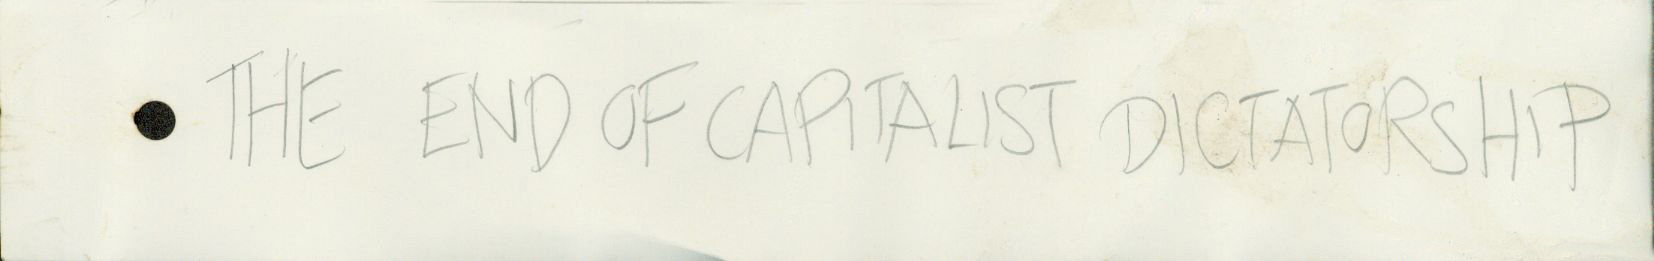 THE END OF CAPITALIST DICTATORSHIP